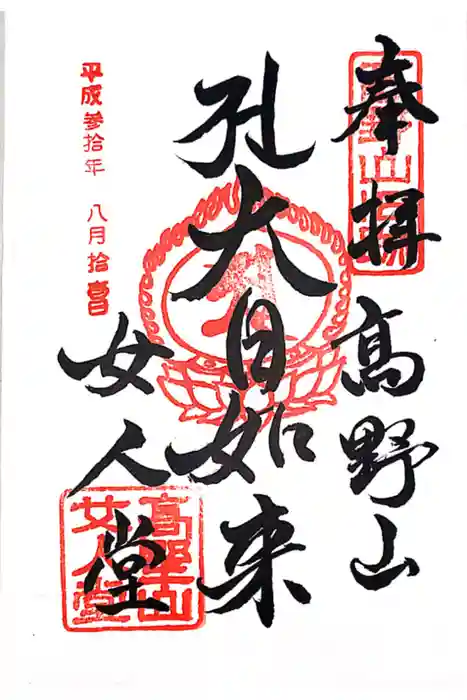 奉拝
高野山
大日如来
女人堂
平成参拾年 八月拾壹日
高野山
女人堂